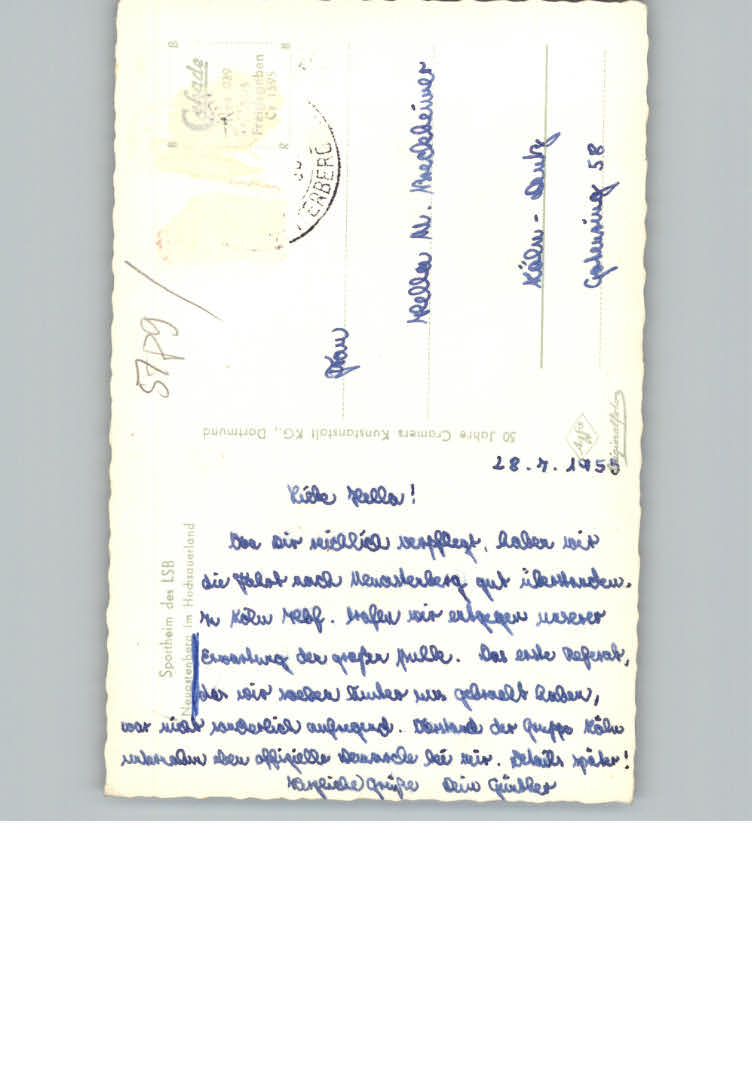 Cekade
Freigegeben
Ce 1595
ERBERG
5789
Frau
Hella M. Breckheimer
Köln-Deutz
Gotenring 58
50 Jahre Cramers Kunstanstalt KG., Dortmund
Agfa
Originalfoto
Sportheim des LSB
Neuastenberg im Hochsauerland
28.7.195
Liebe Hella!
Von Dir reichlich verpflegt, haben wir
die Fahrt nach Neuastenberg gut überstanden.
In Köln Hbf. trafen wir entgegen unserer
Erwartung den großen Mulle. Das erste Referat,
das wir soeben hinter uns gebracht haben,
war nicht sonderlich aufregend. Vorstand der Gruppe Köln
unternahm eben offizielle Demarche bei mir. Details später!
Herzliche Grüße Dein Günther